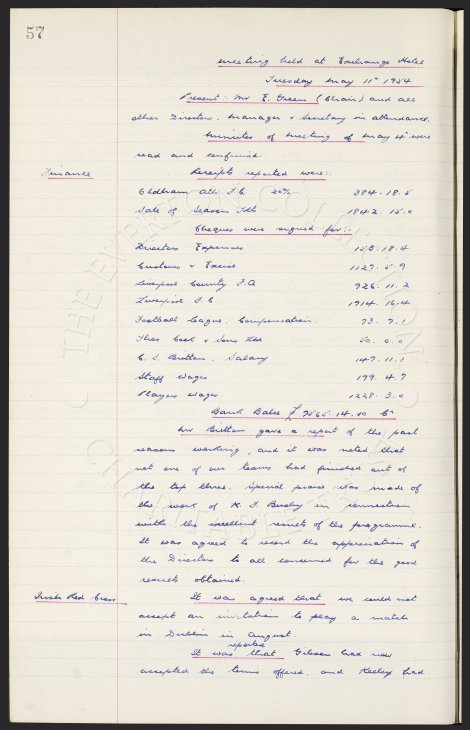 57
Meeting held at Exchange Hotel
Tuesday May 11th 1954
Present:- Mr E. Green (Chair) and all
other Directors. Manager & Secretary in attendance.
Minutes of Meeting of May 4th were
read and confirmed.
Finance Receipts reported were:-
Oldham Ath F.C. 20% 384. 18. 5
Sale of Season Tkts 1842. 15. 0
Cheques were signed for:-
Directors Expenses 18. 4
Customs & Excise 1127. 5. 9
Liverpool County F.A 926. 11. 2
Liverpool F.C 1914. 16. 4
Football League. Compensation. 73. 7. 1
Thos Cook & Sons Ltd 50. 0. 0
C. S. Britton. Salary 147. 11. 1
Staff Wages 199. 4. 7
Players Wages 1228. 3. 0
Bank Balce £ 7565. 14. 10 Cr
Mr Britton gave a report of the past
seasons working, and it was noted that
not one of our teams had finished out of
the top three. Special praise was made of
the work of K. F. Busby in connection
with the excellent results of the programme.
It was agreed to record the appreciation of
the Directors to all concerned for the good
results obtained.
Irish Red Cross It was agreed that we could not
accept an invitation to play a match
in Dublin in August.
It was reported that Gibson had now
accepted the terms offered, and had
THE EVERTON COLLECTION